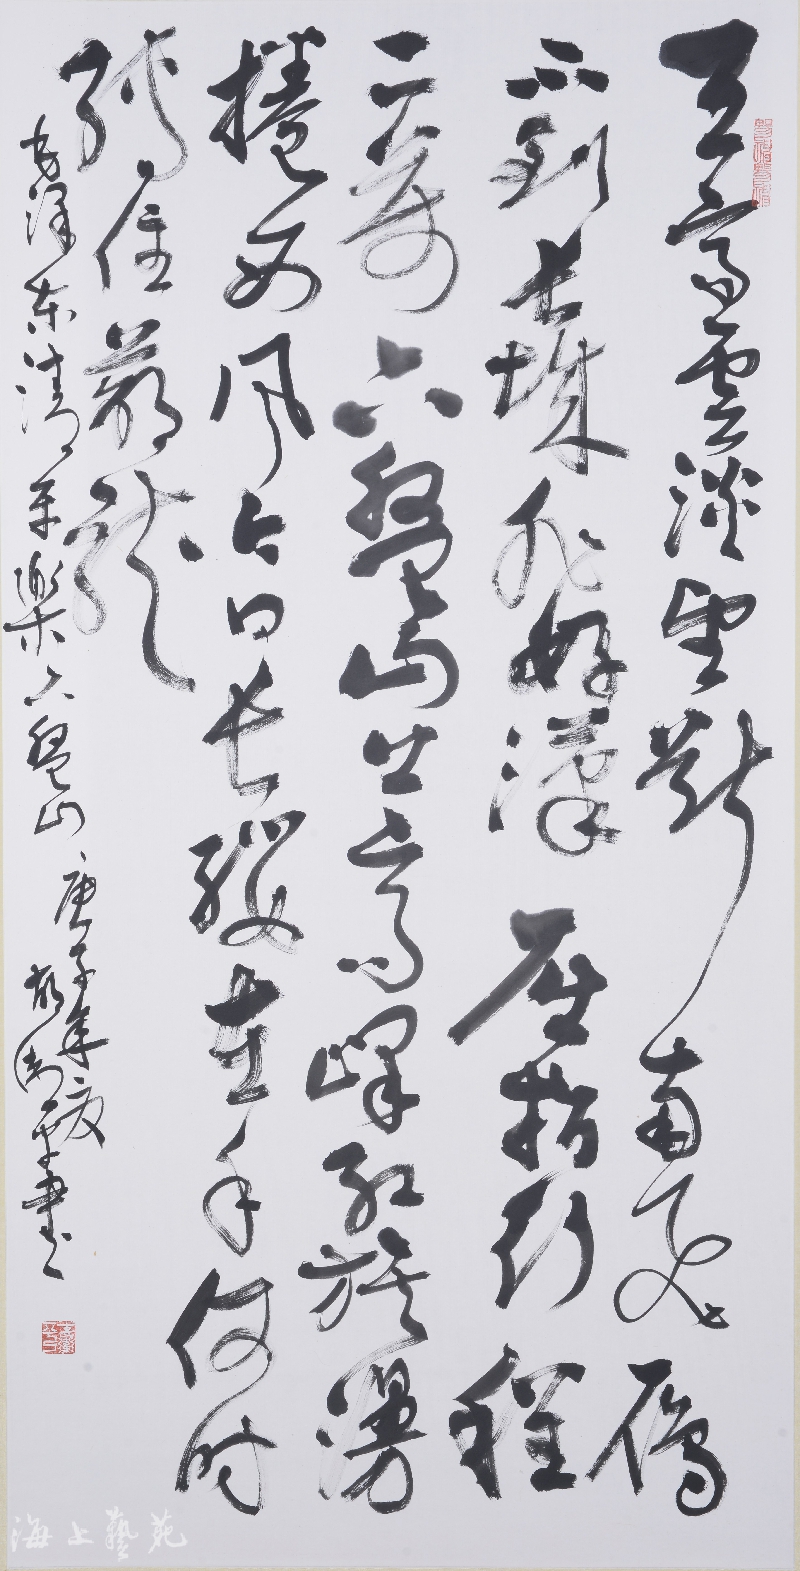 天高雲淡望斷南飛雁
不到長城非好漢屈指行程
二萬六盤山上高峰紅旗漫
捲西風今日長纓在手何時
縛住蒼龍
毛澤東清平樂六盤山
庚子年夏
書
海上藝苑